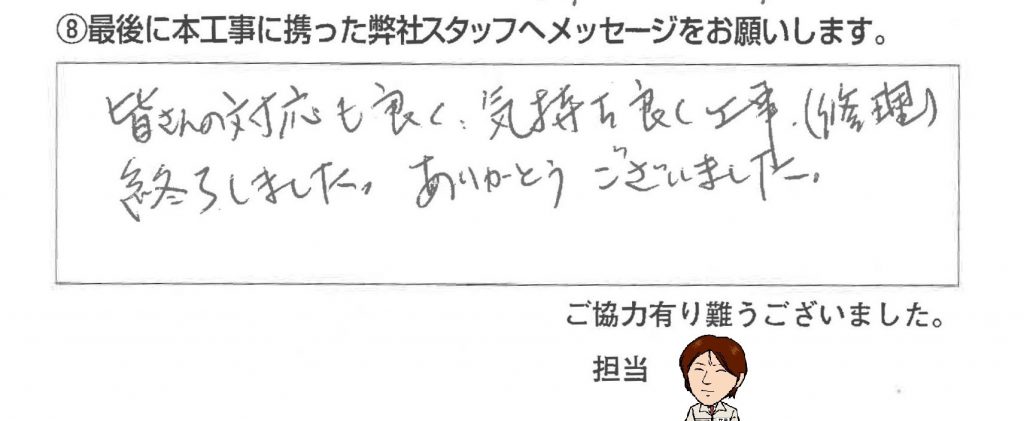 ⑧最後に本工事に携った弊社スタッフへメッセージをお願いします。
皆さんの対応も良く、気持ち良く工事、(修理)
終了しました。ありがとうございました。
ご協力有り難うございました。
担当